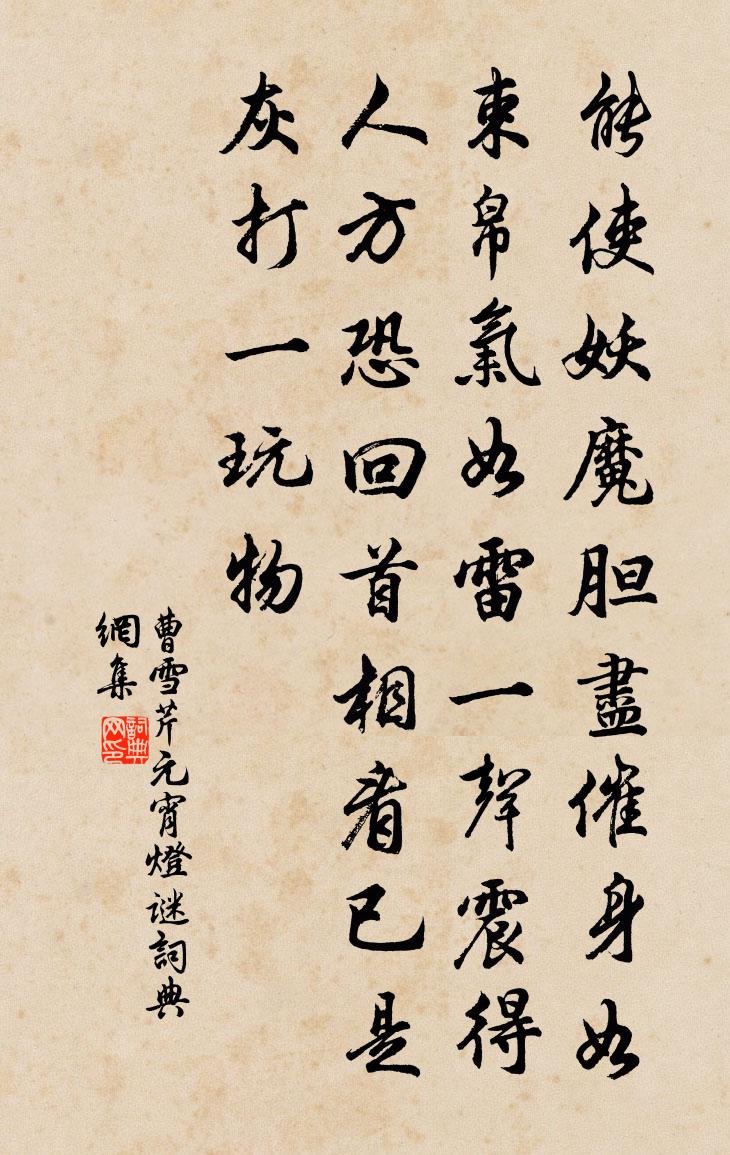 能使妖魔胆盡催身如
束帛氣如雷一聲震得
人方恐回首相看已是
灰打一玩物
曹雪芹元宵燈谜詞典
網集
詞典
网印